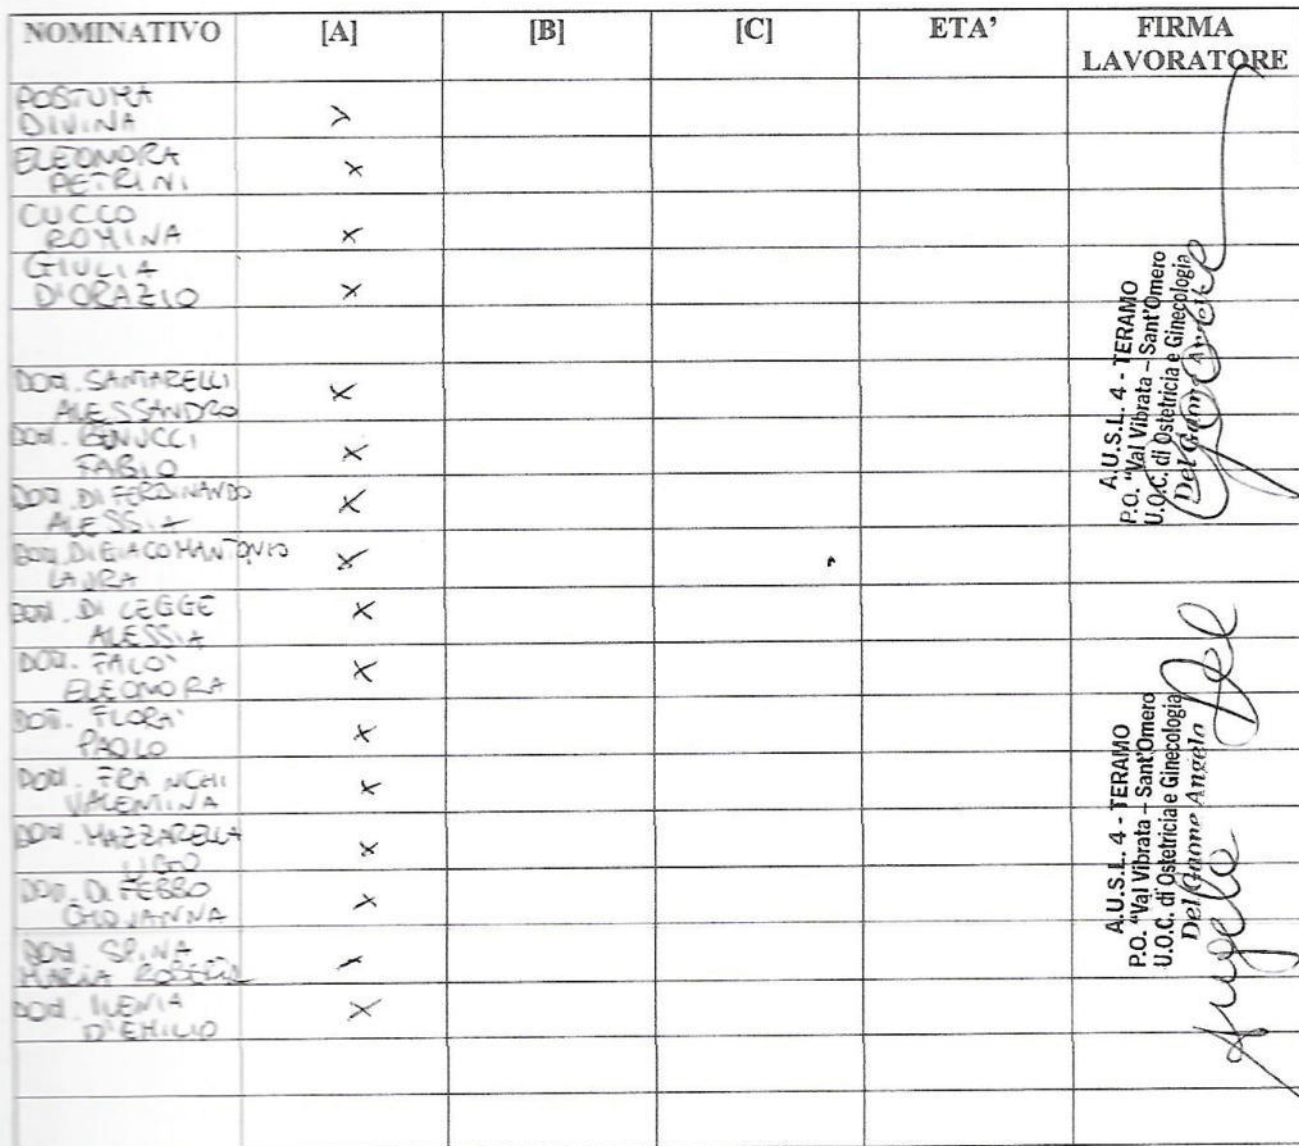 NOMINATIVO [A] [B] [C] ETA' FIRMA
LAVORATORE
POSTUMA
DIVINA X
ELEONORA
PETRINI X
CUCCO
ROMINA X
GIULIA
D'ORAZIO X
DOTT. SANTARELLI
ALESSANDRO X
DOTT.
FABIO X
DOTT. DI FERDINANDO
ALESSIA X
DOTT. DI GIACOMANTONIO
LAURA X
DOTT. DI LEGGE
ALESSIA X
DOTT. FALO'
ELEONORA X
DOTT. FLORA'
PAOLO X
DOTT. FRANCHI
VALENTINA X
DOTT. MAZZARELLA
UGO X
DOTT. DI FEBBO
GIOVANNA X
DOTT. SPINA
MARIA ROBERTA X
DOTT. ILENIA
D'EMILIO X
A.U.S.L. 4 - TERAMO
P.O. "Val Vibrata – Sant'Omero
U.O.C. di Ostetricia e Ginecologia
A.U.S.L. 4 - TERAMO
P.O. "Val Vibrata – Sant'Omero
U.O.C. di Ostetricia e Ginecologia
Angelo
Angelo Del